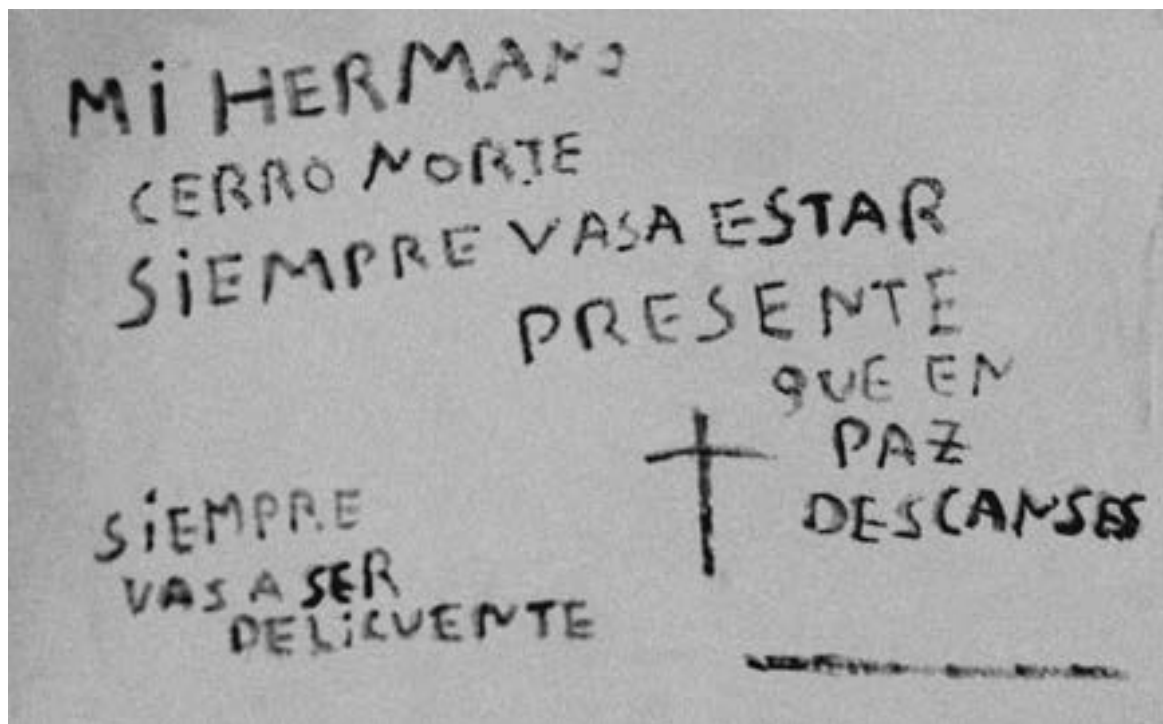 Mi HERMANO
CERRO NORTE
SiEMPRE VASA ESTAR
PRESENTE
QUE EN
PAZ
DESCANSES
SiEMPRE
VAS A SER
DELiCUENTE